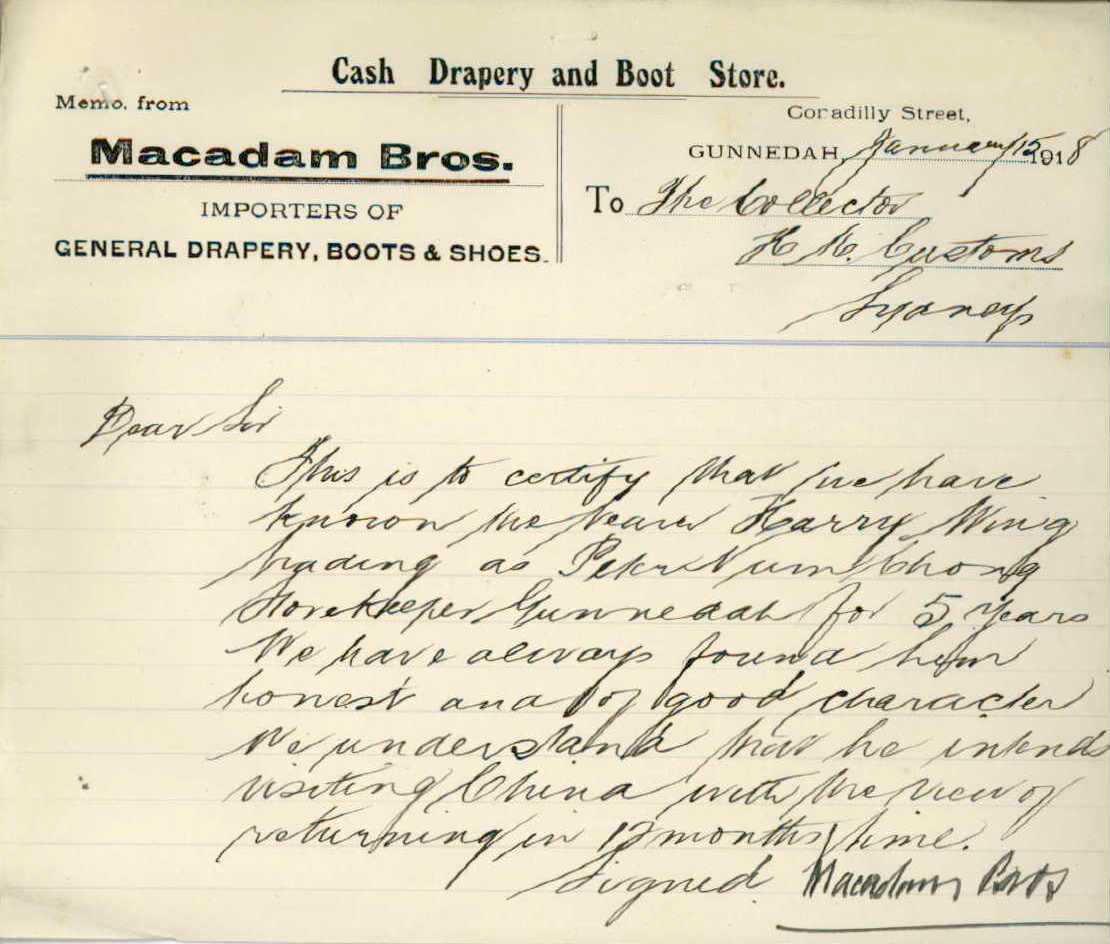 Cash Drapery and Boot Store.
Memo. from
Macadam Bros.
IMPORTERS OF
GENERAL DRAPERY, BOOTS & SHOES.
Conadilly Street,
GUNNEDAH, January 15 1918
To The Collector
H. M. Customs
Sydney
Dear Sir
This is to certify that we have
known the bearer Harry Wing
trading as Peter Num Chong
Storekeeper Gunnedah for 5 years
We have always found him
honest and of good character
We understand that he intends
visiting China with the view of
returning in 12 months time.
Signed Macadam Bros